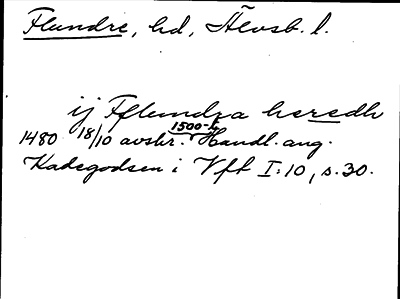 Flundre, hd, Älvsb. l.
ij Fflundra heredh
1480 18/10 avskr. 1500-t. Handl. ang.
Kadegodsen i Vft I:10, s. 30.